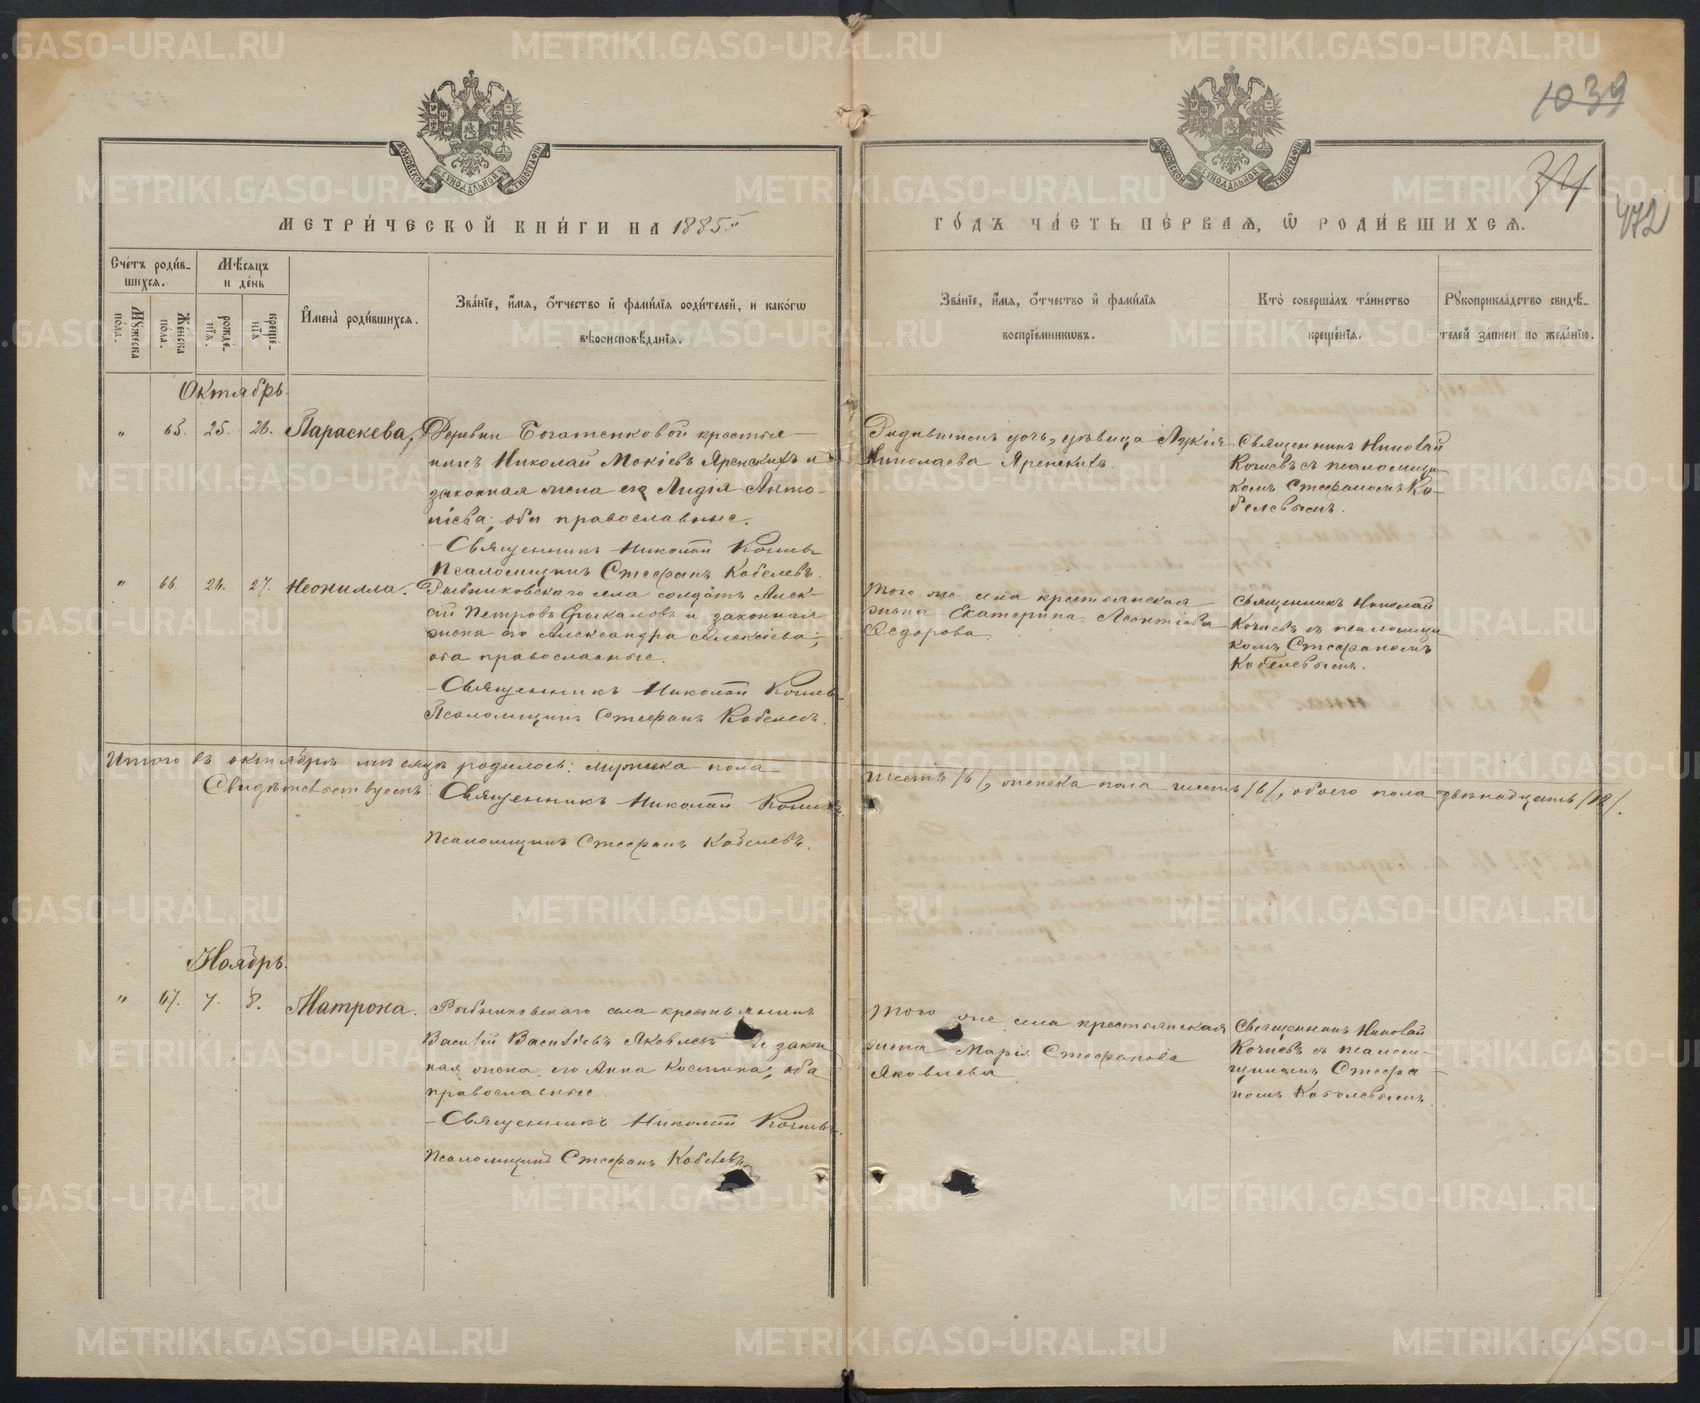 1039
34
472
МОСКОВСКОЙ СѴНОДАЛЬНОЙ ТИПОГРАФІИ
МОСКОВСКОЙ СѴНОДАЛЬНОЙ ТИПОГРАФІИ
МЕТРИ́ЧЕСКОЙ КНИ́ГИ НА 1885й
ГО́ДЪ ЧА́СТЬ ПЕ́РВАѦ, Ѽ РОДИ́ВШИХСѦ.
Сче́тъ роди́в-
шихсѧ.
Мѣ́сѧцъ
и де́нь
Мꙋ́жеска
пола.
Же́нска
пола.
рожде-
нїѧ.
креще-
нїѧ
И҆мена̀ роди́вшихсѧ.
Зва́нїе, и҆́мѧ, о҆́тчество и҆ фами́лїѧ роди́телей, и како́гѡ
вѣроисповѣ́данїѧ.
Зва́нїе, и҆́мѧ, о҆́тчество и҆ фами́лїѧ
воспрїе́мникѡвъ.
Кто̀ соверша́лъ та́инство
креще́нїѧ.
Рꙋкоприкла́дство свидѣ́-
телей за́писи по жела́нїю.
Октябрь.
„ 65. 25. 26. Параскева,
Деревни Богатенковой крестья-
нинъ Николай Мокіевъ Яренскихъ и
законная жена его Лидія Анто-
ніева; оба православные.
– Священникъ Николай Кочневъ
Псаломщикъ Стефанъ Кобелевъ.
Николаева Яренскихъ.
Священникъ Николай
Кочневъ съ псаломщи-
комъ Стефаномъ Ко-
белевымъ.
„ 66. 26. 27. Неонилла.
Рыбниковскаго села солдатъ Алек-
сѣй Петровъ и законная
жена его Александра Алексіева;
оба православные.
– Священникъ Николай Кочневъ
Псаломщикъ Стефанъ Кобелевъ.
Того же села крестьянская
жена Екатерина Леонтіева
Ѳедорова.
Священникъ Николай
Кочневъ съ псаломщи-
комъ Стефаномъ
Кобелевымъ.
Итого въ октябрѣ мѣсяцѣ родилось: мужеска пола
шесть /6/, женска пола шесть /6/, обоего пола двѣнадцать /12/.
Свидѣтельствуемъ: Священникъ Николай Кочневъ
Псаломщикъ Стефанъ Кобелевъ.
Ноябрь.
„ 67. 7. 8. Матрона.
Рыбниковскаго села крестьянинъ
Василій Васильевъ Яковлевъ и закон
ная жена его Анна Космина; оба
православные.
– Священникъ Николай Кочневъ.
Псаломщикъ Стефанъ Кобелевъ
Того же села крестьянская
жена Марія Стефанова
Яковлева
Священникъ Николай
Кочневъ съ псалом-
щикомъ Стефа-
номъ Кобелевымъ.
METRIKI.GASO-URAL.RU